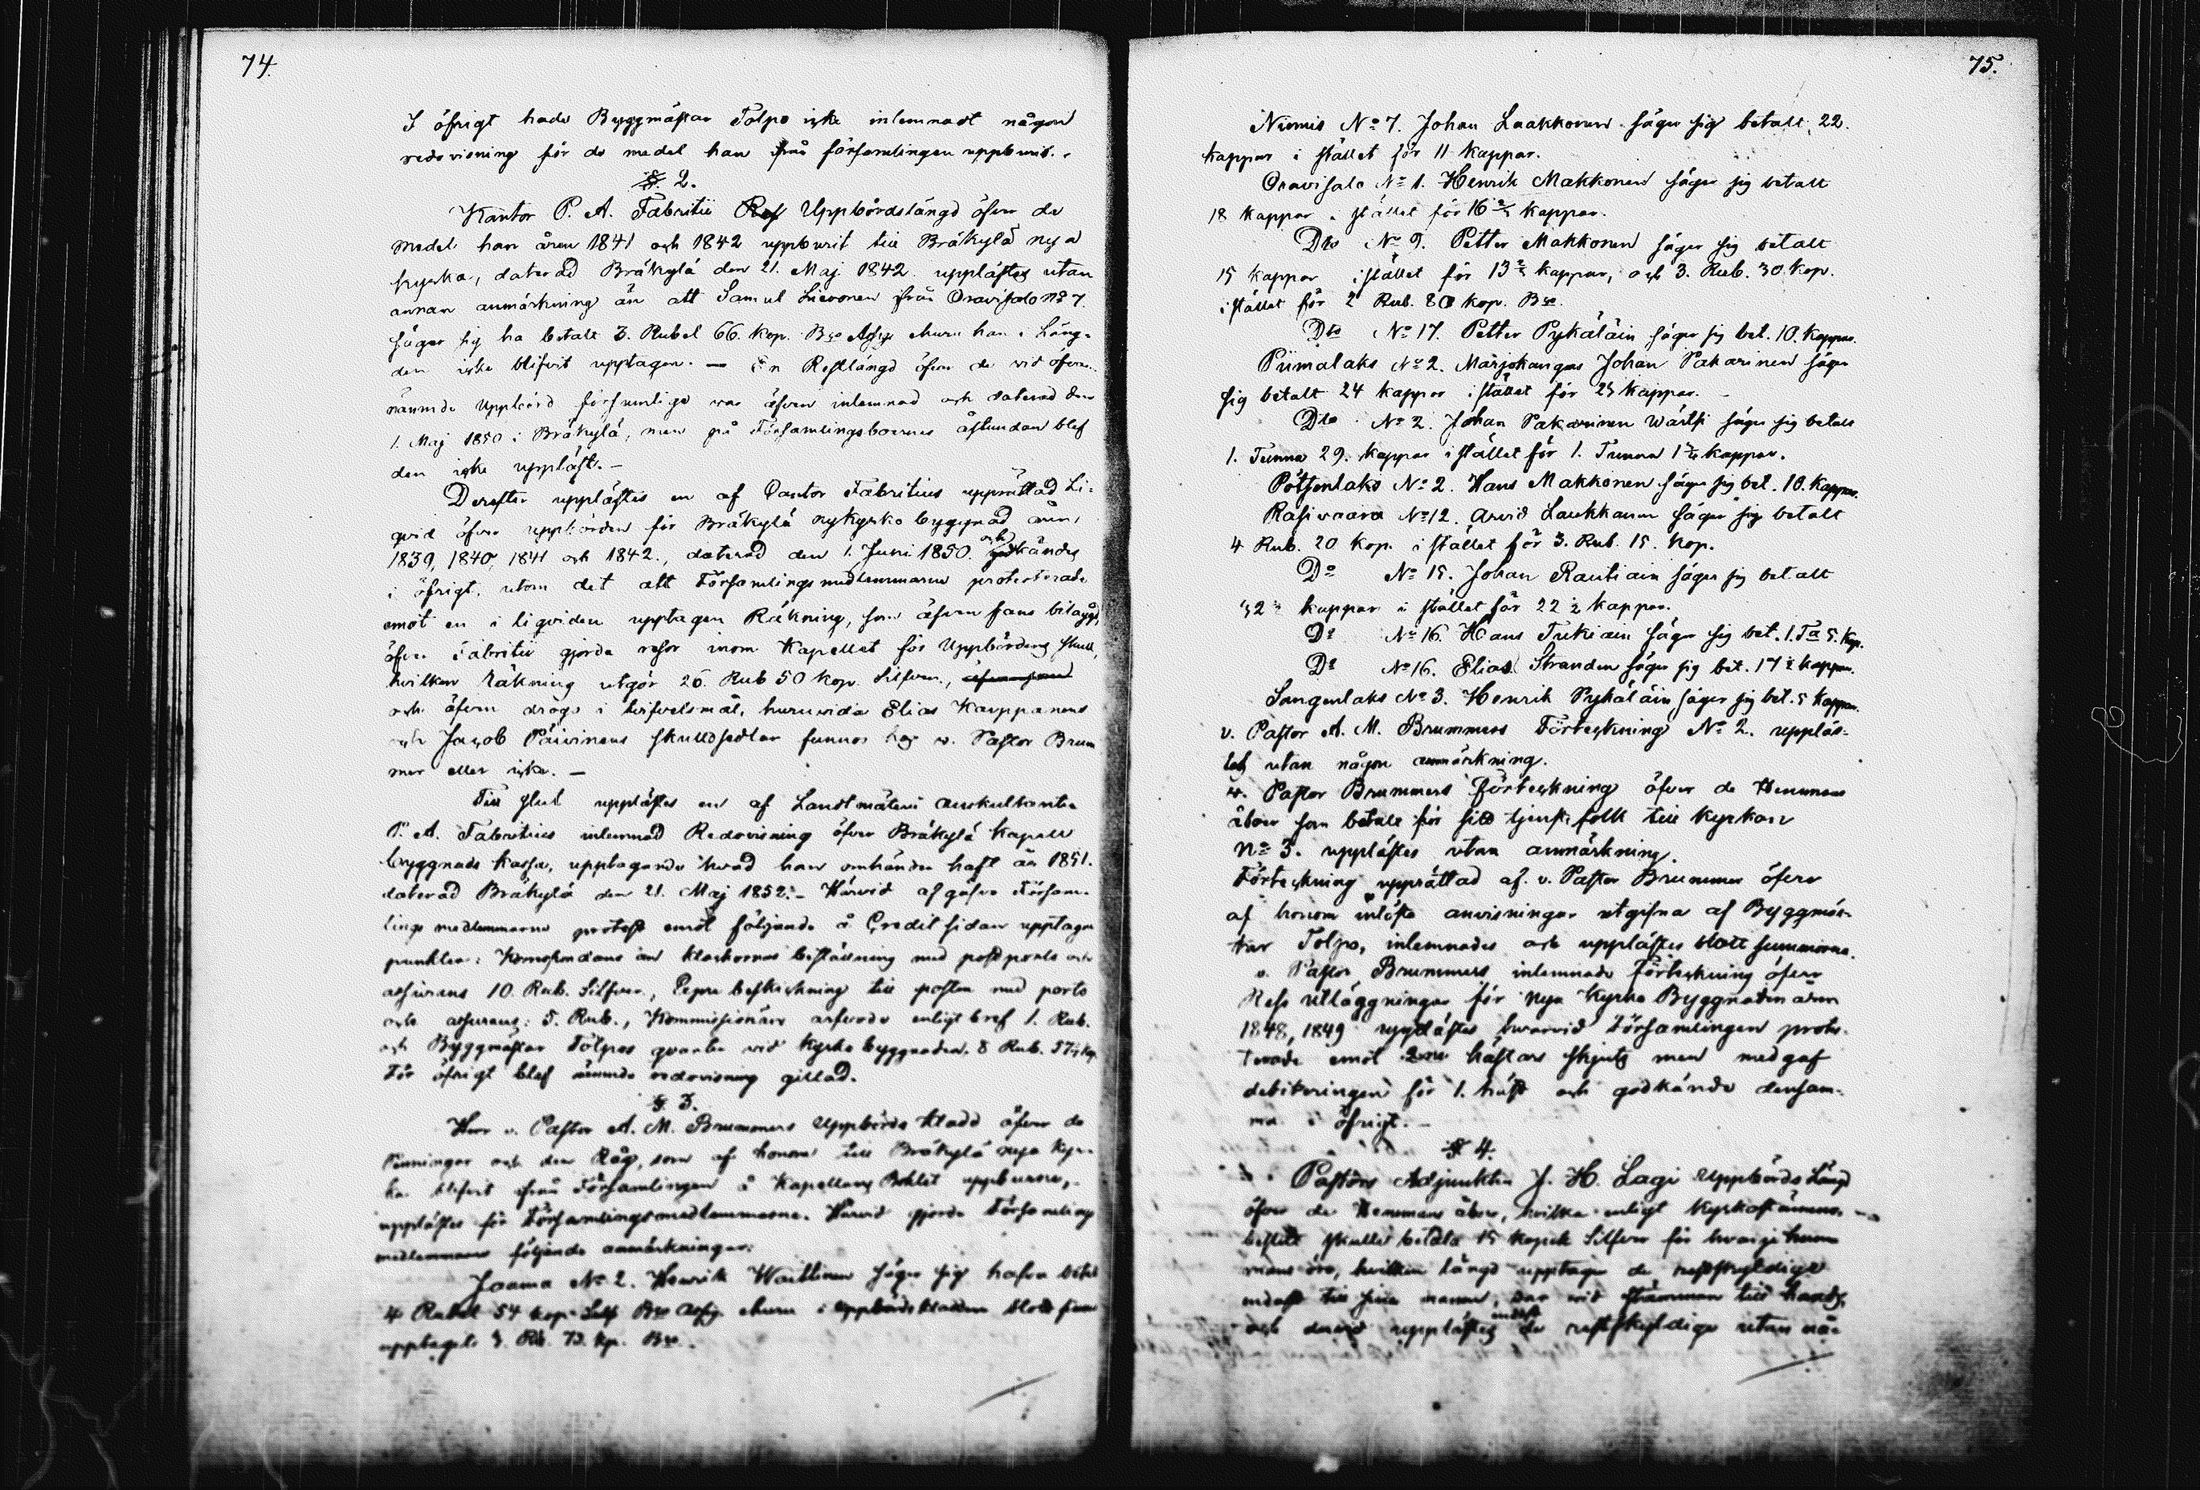 74.
I öfrigt hade Byggmästar Tolpo icke inlemnadt någon
redovisning för de medel han från församlingen uppburit.
§. 2.
Kantor P. A. Fabritii Uppbördslängd öfver de
medel han åren 1841 och 1842 uppburit till Bräkylä nya
kyrka, daterad Bräkylä den 21. Maj 1842 upplästes utan
annan anmärkning än att Samul Lievonen från Oravisalo No 7
säger sig ha betalt 3. Rubel 66. Kop. Bco Assig churu han i Läng-
den icke blifvit upptagen. — En Restlängd öfver de vid öfvan-
nämnde Uppbörd försumlige var äfven inlemnad och daterad den
1. Maj 1850 i Bräkylä, men på Församlingsboernes åstundan blef
den icke uppläst. —
Derefter upplästes en af Cantor Fabritius upprättad Li-
qvid öfver uppbörden för Bräkylä nykyrko byggnad åren,
1839, 1840, 1841 och 1842., daterad den 1. Juni 1850. och godkändes
i öfrigt, utom det att Församlings medlemmarne protesterade
emot en i liqviden upptagen Räkning, som äfven fans bilagd,
öfver Fabritii gjorda resor inom Kapellet för Uppbördens skull,
hvilken räkning utgör 26. Rub 50 Kop. Silfver,
och äfven drogs i tvifvelsmål, huruvida Elias Karppanens
och Jacob Päivinens skulldsedlar funnos hos v. Pastor Brum
mer eller icke. —
Till slut upplästes en af Landtmäteri Auskultanten
P. A. Fabritius inlemnad Redovisning öfver Bräkylä Kapell
byggnads kassa, upptagande hvad han omhänder haft år 1851.
daterad Bräkylä den 21. Maj 1852. — Härvid afgåfvo Försam-
lings medlemmarne protest emot följande å Credit sidan upptagne
punkter: Korrespondans om klockornas beställning med postporto och
assurans 10. Rub. Silfver., Peprs beskickning till posten med porto
och assurans: 5. Rub., Kommissionärs arfvode enligt bref 1. Rub.
och Byggmästar Tolpos qvarter vid kyrko byggnaden. 8 Rub. 57½ Kop
För öfrigt blef nämnde redovisning gillad.
§ 3.
Herr v. Pastor A. M. Brummers Uppbörds Kladd öfver de
Penningar och den Råg, som af honom till Bräkylä nya kyr-
ka blifvit från Församlingen å Kapellans Bohlet uppburne,
upplästes för Församlingsmedlemmarne. Härvid gjorde Församlings
medlemmarne följande anmärkningar:
Jaama No 2. Henrik Waittinen säger sig hafva betalt
4 Rubel 54 Kop. Bco Assig churu i Uppbörds Kladden blott finnes
upptaget 3. Rb. 73. Kop. Bco.
75.
Niemis No 7. Johan Laakkonen säger sig betalt 22.
kappar i stället för 11 kappar.
Oravisalo No 1. Henrik Makkonen säger sig betalt
18 kappar i stället för 16 2/3 kappar.
Dto No 9. Petter Makkonen säger sig betalt
15 kappar i stället för 13 2/3 kappar, och 3. Rub. 30 Kop.
i stället för 2 Rub. 80 Kop. Bco.
Dto No 17. Petter Pykäläin säger sig bet. 10. kappar.
Piimalaks No 2. Marjokangas Johan Pakarinen säger
sig betalt 24 kappar i stället för 23 kappar.
Dto No 2. Johan Pakarinen Wärtsi säger sig betalt
1. Tunna 29. kappar i stället för 1. Tunna 1 ½ kappar.
Pötsönlaks No 2. Hans Makkonen säger sig bet. 10. kappar.
Rasiwaara No 12. Arvid Laukkanen säger sig betalt
4 Rub. 20 Kop. i stället för 3. Rub. 15. Kop.
Do No 15. Johan Rautiain säger sig betalt
32 ½ kappar i stället för 22 ½ kappar.
Do No 16. Hans Tukiain säger sig bet. 1. Ta 5. Kap.
Do No 16. Elias Stranden säger sig bet. 17 ½ kappar.
Sangenlaks No 3. Henrik Pykäläin säger sig bet. 5 kappar.
v. Pastor A. M. Brummers Förteckning No 2. uppläs-
tes utan någon anmärkning.
v. Pastor Brummers Förteckning öfver de Hemmans
åboer som betalt för sitt tjenstefolk till Kyrkan
No 3. upplästes utan anmärkning.
Förteckning upprättad af v. Pastor Brummer öfver
af honom inlösta anvisningar utgifna af Byggmäs-
tar Tolpo, inlemnades och upplästes blott summorna.
v. Pastor Brummers inlemnade Förteckning öfver
Rese utläggningar för Nya Kyrko Byggnaden åren
1848, 1849 upplästes hvarvid Församlingen protes-
terade emot 2ne hästars skjuts men medgaf
debiteringen för 1. häst och godkände densam-
ma i öfrigt. —
§ 4.
Pastors Adjunkten J. H. Lagi Uppbörds Längd
öfver de Hemmans åboer, hvilka enligt Kyrkostämmo-
beslut skulle betala 15 Kopek Silfver för hvarje hem-
mans öre, hvilken längd upptager de restskyldige
endast till sina namn, var vid stämman till hands,
och derur upplästes endast de restskyldige utan nå-